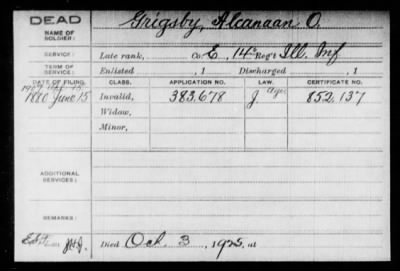 DEAD
NAME OF SOLDIER:
Grigsby, Alcanaan O.
SERVICE:
Late rank, Co. E, 14" Reg't Ill. Inf
TERM OF SERVICE:
Enlisted , 1 Discharged , 1
DATE OF FILING. CLASS. APPLICATION NO. LAW. CERTIFICATE NO.
1907
1880 June 15 Invalid, 383.678 J. Age 852.137
Widow,
Minor,
ADDITIONAL SERVICES:
REMARKS:
Died Oct. 3, 1925, at